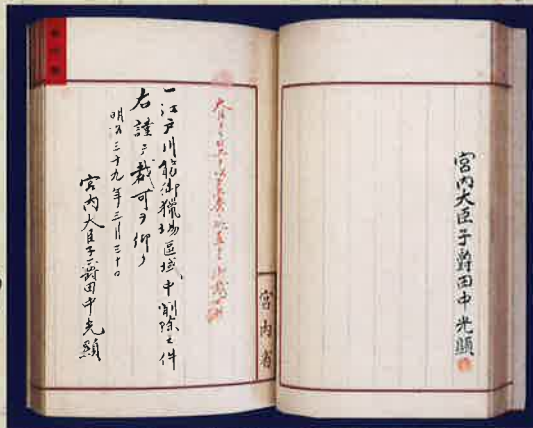 宮内大臣子爵田中光顯
宮内省
一江戸川筋御猟場區域中削除之件
右謹テ裁可ヲ仰ク
明治三十九年三月三十日
宮内大臣子爵田中光顯